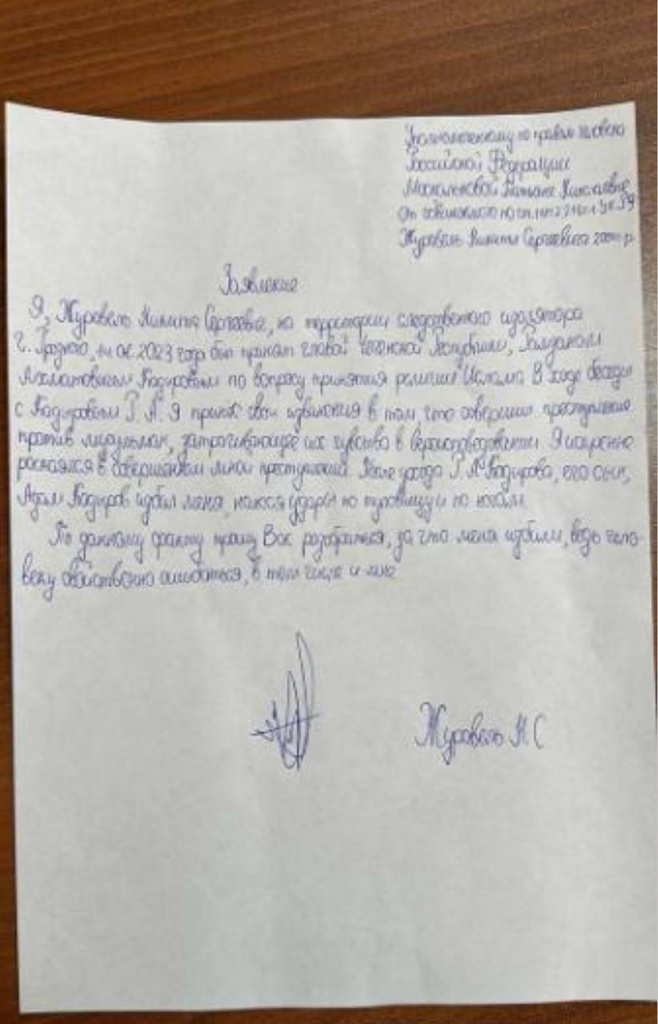 Уполномоченному по правам человека
Российской Федерации
Москальковой Татьяне Николаевне
от обвиняемого по ст. УК РФ
Журавель Никиты Сергеевича р
Заявление
Я, Журавель Никита Сергеевич, на территории следственого изолятора
г. Грозного, 2023 года был принят главой Чеченской Республики, Рамзаном
Ахматовичем Кадыровым по вопросу принятия религии Ислама. В ходе беседы
с Кадыровым Р. А. Я принес свои извинения в том, что совершил преступление
против мусульман, затрагивающее их чувство в вероисповедовании. Я искренне
раскаялся в совершенном мной преступлении. После ухода Р. А. Кадырова, его сын,
Адам Кадыров избил меня, нанося удары по туловищу и по ногам.
По данному факту прошу Вас разобраться, за что меня избили, ведь чело-
веку свойственно ошибаться, в том числе и мне
Журавель Н С